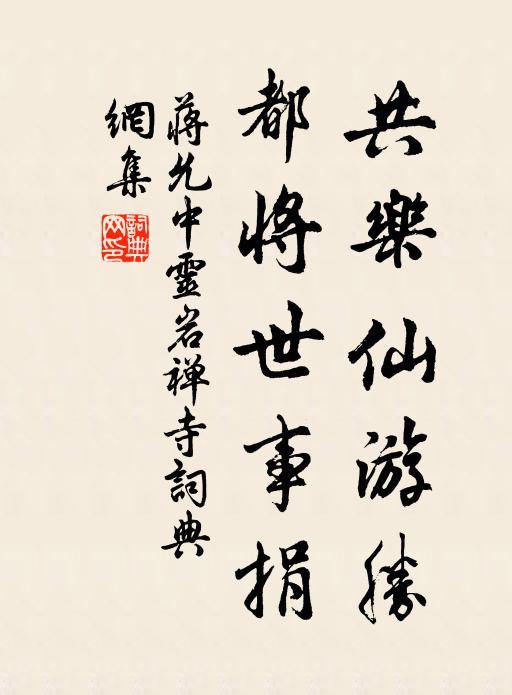 共樂仙游勝
都將世事捐
蔣允中靈岩禅寺詞典
網集
詞典
网印